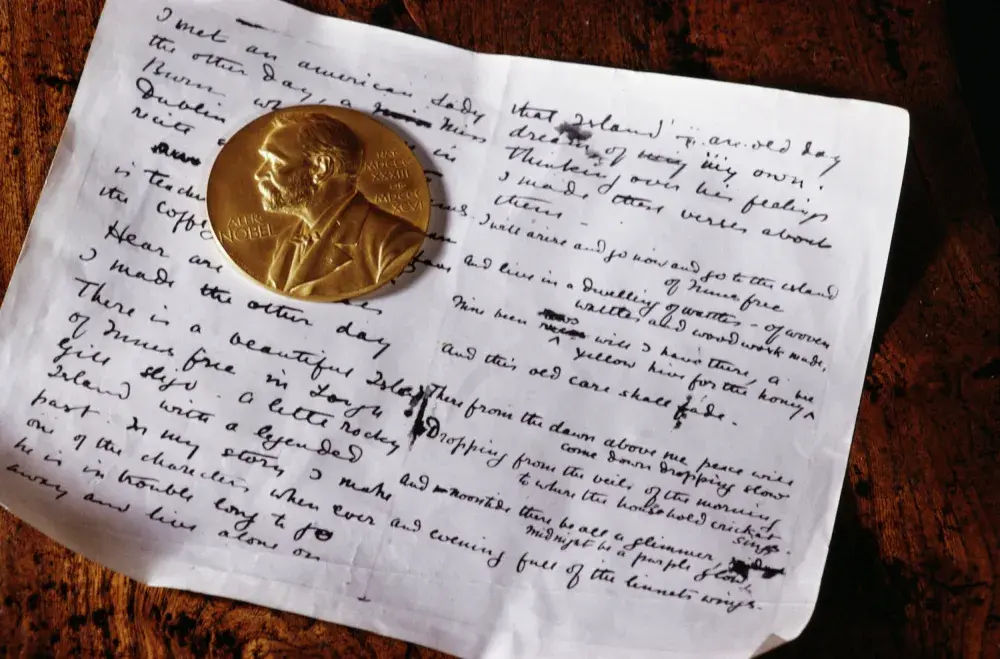 I met an american Lady
the other Day a Miss
Burn in
Dublin
recite
is teaching
the
Hear are
I made the other day
There is a beautiful Island
of Innis free in Lough
Gill Sligo A little rocky
Island with a legended
past. In my story I make
one of the characters when ever
he is in trouble long to go
away and live alone on
ALFR.
NOBEL
NAT.
MDCCC
XXXIII
OB.
MDCCC
XCVI
that Island — an old day
dream of my own.
Thinking over his feelings
I made these verses about
them —
I will arise and go now and go to the island
of Innis free
And live in a dwelling of wattles — of woven
wattles and wood work made,
Nine bean rows will I have there, a
yellow hive for the honey
And this old care shall fade.
There from the dawn above me peace will
come down dropping slow
Dropping from the veils of the morning
to where the household cricket
sings.
And noontide there be all a glimmer
midnight be a purple glow
and evening full of the linnets wings.